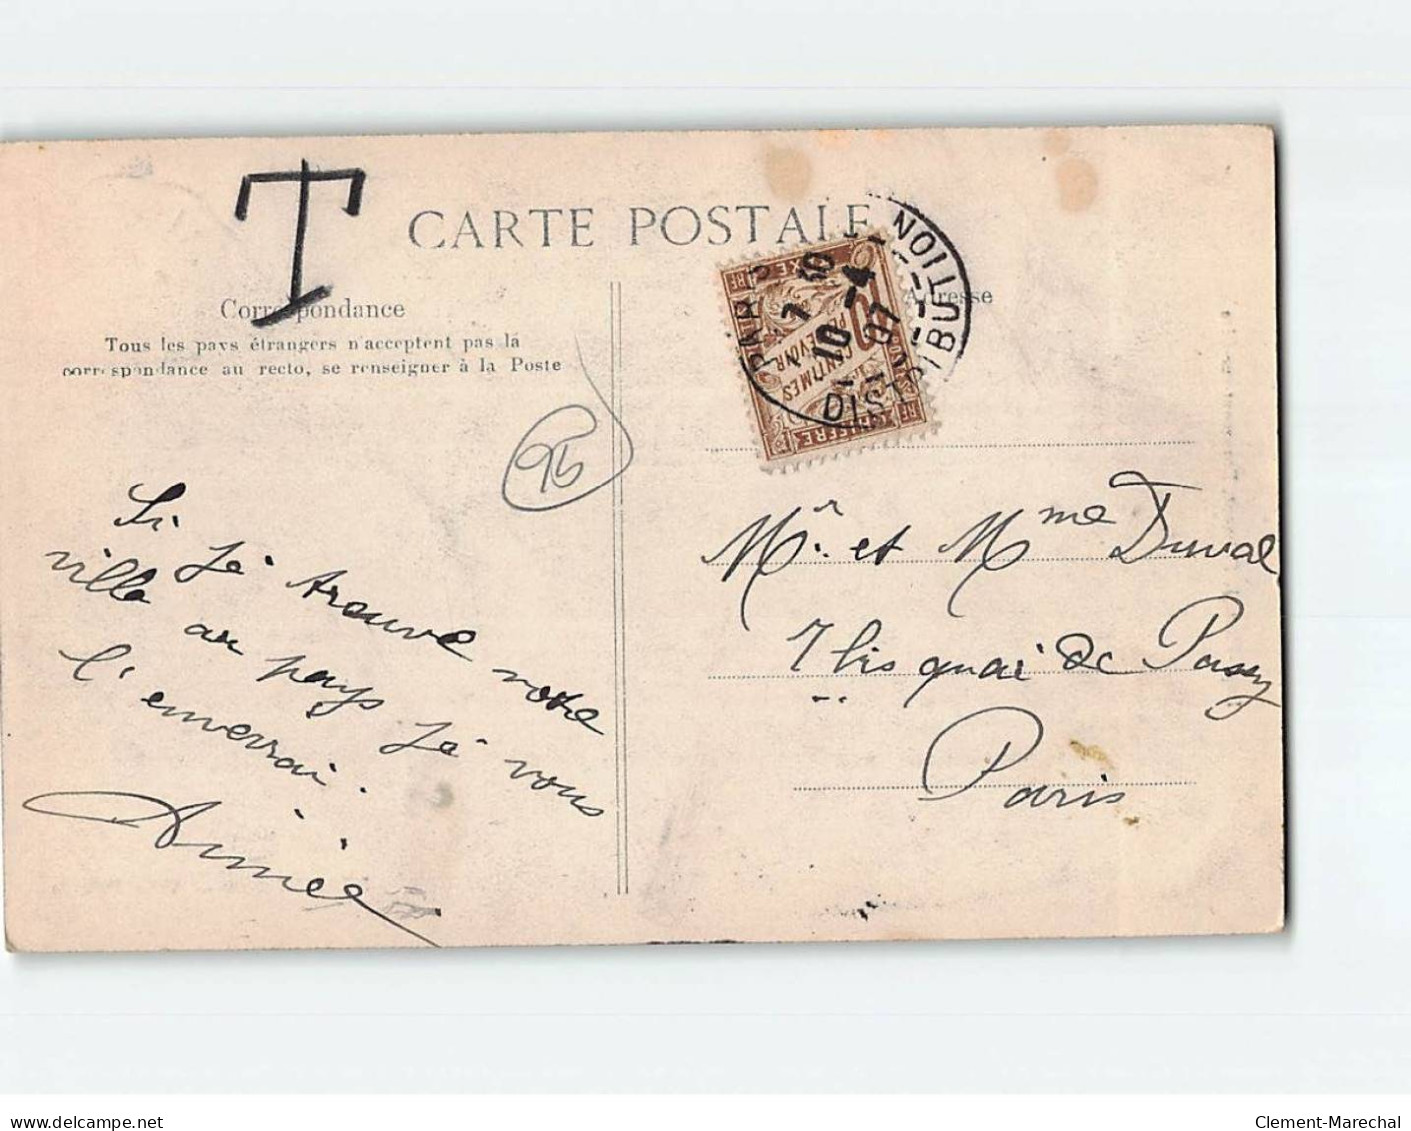 T
CARTE POSTALE
Correspondance
Tous les pays étrangers n'acceptent pas la
correspondance au recto, se renseigner à la Poste
Adresse
PARIS
DISTRIBUTION
7 30
10 - 4
07
CENTIMES
CHIFFRE TAXE
95
Si Je trouve votre
ville au pays Je vous
l'enverrai.
Aimée
Mr. et Mme Duval
7 bis quai de Passy
Paris
delcampe.net
Clement-Marechal